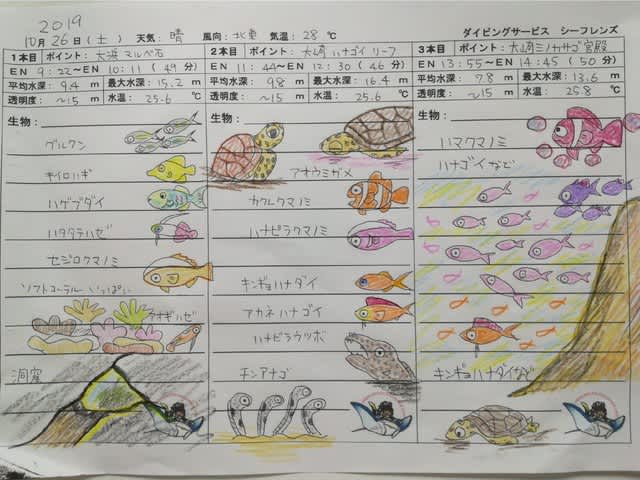 2019
10月26日(土) 天気:晴 風向:北東 気温:28℃ ダイビングサービス シーフレンズ
1本目 ポイント:大浜マルベ石
EN 9:22~EN 10:11(49分)
平均水深:9.4m 最大水深:15.2m
透明度:~15m 水温:25.6℃
生物:
グルクン
キイロハギ
ハゲブダイ
ハタタテハゼ
セジロクマノミ
ソフトコーラルいっぱい
アオギハゼ
洞窟
2本目 ポイント:大崎ハナゴイリーフ
EN 11:44~EN 12:30(46分)
平均水深:9.8m 最大水深:16.4m
透明度:~15m 水温:25.6℃
生物:
アオウミガメ
カクレクマノミ
ハナビラクマノミ
キンギョハナダイ
アカネハナゴイ
ハナビラウツボ
チンアナゴ
3本目 ポイント:大崎ミノカサゴ宮殿
EN 13:55~EN 14:45(50分)
平均水深:7.8m 最大水深:13.6m
透明度:~15m 水温:25.8℃
生物:
ハマクマノミ
ハナゴイなど
キンギョハナダイなど